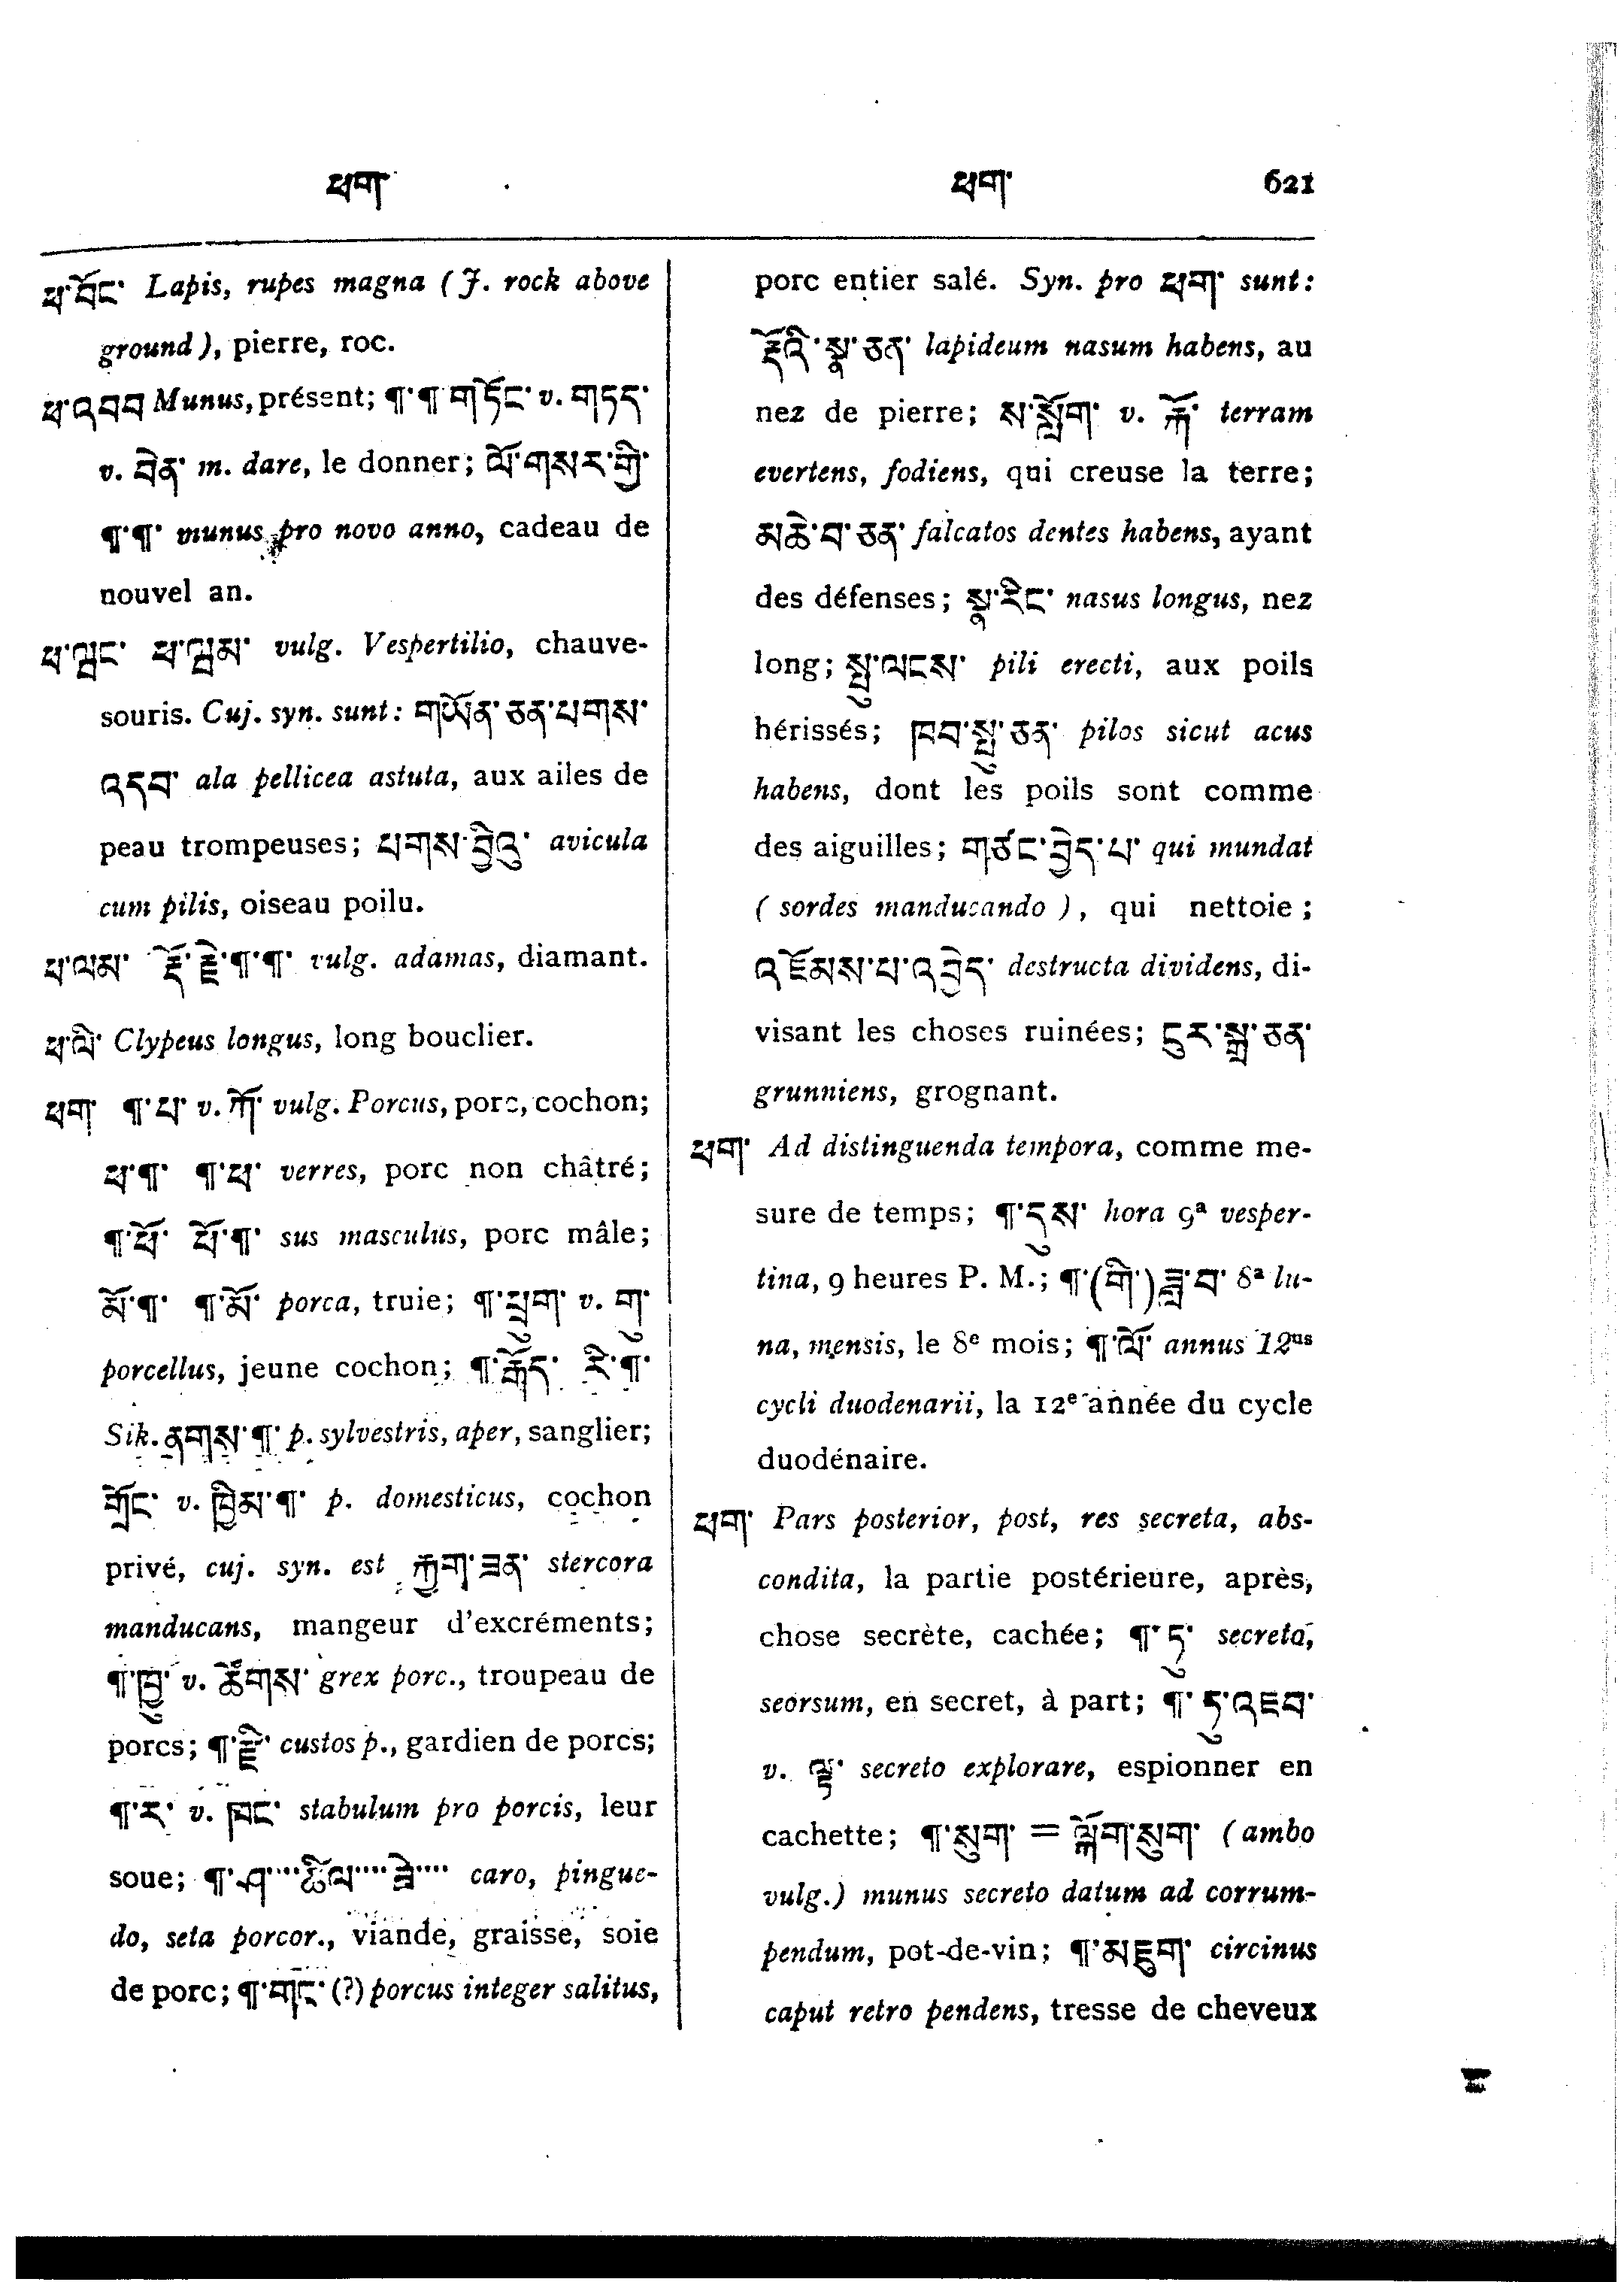 ཕག་ ཕག་ 621
ཕ་བོང་ Lapis, rupes magna (J. rock above
ground), pierre, roc.
ཕ་འབབ Munus, présent; ¶་¶ གཏོང་ v. གཏད་
v. བིན་ m. dare, le donner; ལོ་གསར་གྱི་
¶་¶་ munus pro novo anno, cadeau de
nouvel an.
ཕ་ལྦང་ ཕ་ལྦམ་ vulg. Vespertilio, chauve-
souris. Cuj. syn. sunt: གཡོན་ཅན་པགས་
འདབ་ ala pellicea astuta, aux ailes de
peau trompeuses; པགས་བྱིའུ་ avicula
cum pilis, oiseau poilu.
ཕ་ལམ་ རྡོ་རྗེ་¶་¶་ vulg. adamas, diamant.
ཕ་ལི་ Clypeus longus, long bouclier.
ཕག་ ¶་པ་ v. ཀོ་ vulg. Porcus, porc, cochon;
ཕ་¶་ ¶་ཕ་ verres, porc non châtré;
¶་ཕོ་ ཕོ་¶་ sus masculus, porc mâle;
མོ་¶་ ¶་མོ་ porca, truie; ¶་ཕྲུག་ v. གུ་
porcellus, jeune cochon; ¶་རྒོད་ རི་¶་
Sik. ནགས་¶་ p. sylvestris, aper, sanglier;
གྲོང་ v. ཁྱིམ་¶་ p. domesticus, cochon
privé, cuj. syn. est རྐྱག་ཟན་ stercora
manducans, mangeur d'excréments;
¶་ཁྱུ་ v. ཚོགས་ grex porc., troupeau de
porcs; ¶་རྫི་ custos p., gardien de porcs;
¶་ར་ v. ཁང་ stabulum pro porcis, leur
soue; ¶་ཤ་…ཚིལ་…ཟེ་… caro, pingue-
do, seta porcor., viande, graisse, soie
de porc; ¶་གང་ (?) porcus integer salitus,
porc entier salé. Syn. pro ཕག་ sunt:
རྡོའི་སྣ་ཅན་ lapideum nasum habens, au
nez de pierre; ས་སློག་ v. རྐོ་ terram
evertens, fodiens, qui creuse la terre;
མཆེ་བ་ཅན་ falcatos dentes habens, ayant
des défenses; སྣ་རིང་ nasus longus, nez
long; སྤུ་ལངས་ pili erecti, aux poils
hérissés; ཁབ་སྤུ་ཅན་ pilos sicut acus
habens, dont les poils sont comme
des aiguilles; གཙང་བྱེད་པ་ qui mundat
(sordes manducando), qui nettoie;
འཇོམས་པ་འབྱེད་ destructa dividens, di-
visant les choses ruinées; ངུར་སྒྲ་ཅན་
grunniens, grognant.
ཕག་ Ad distinguenda tempora, comme me-
sure de temps; ¶་དུས་ hora 9ª vesper-
tina, 9 heures P. M.; ¶་(གི་)ཟླ་བ་ 8ª lu-
na, mensis, le 8e mois; ¶་ལོ་ annus 12us
cycli duodenarii, la 12e année du cycle
duodénaire.
ཕག་ Pars posterior, post, res secreta, abs-
condita, la partie postérieure, après,
chose secrète, cachée; ¶་ཏུ་ secreto,
seorsum, en secret, à part; ¶་ཏུ་འཇབ་
v. ལྟ་ secreto explorare, espionner en
cachette; ¶་སུག་ = ལྐོག་སུག་ (ambo
vulg.) munus secreto datum ad corrum-
pendum, pot-de-vin; ¶་མཇུག་ circinus
caput retro pendens, tresse de cheveux